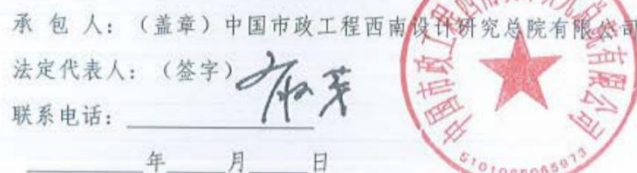 承 包 人：（盖章）中国市政工程西南设计研究总院有限公司
法定代表人：（签字）
联系电话：
年 月 日
中国市政工程西南设计研究总院有限公司